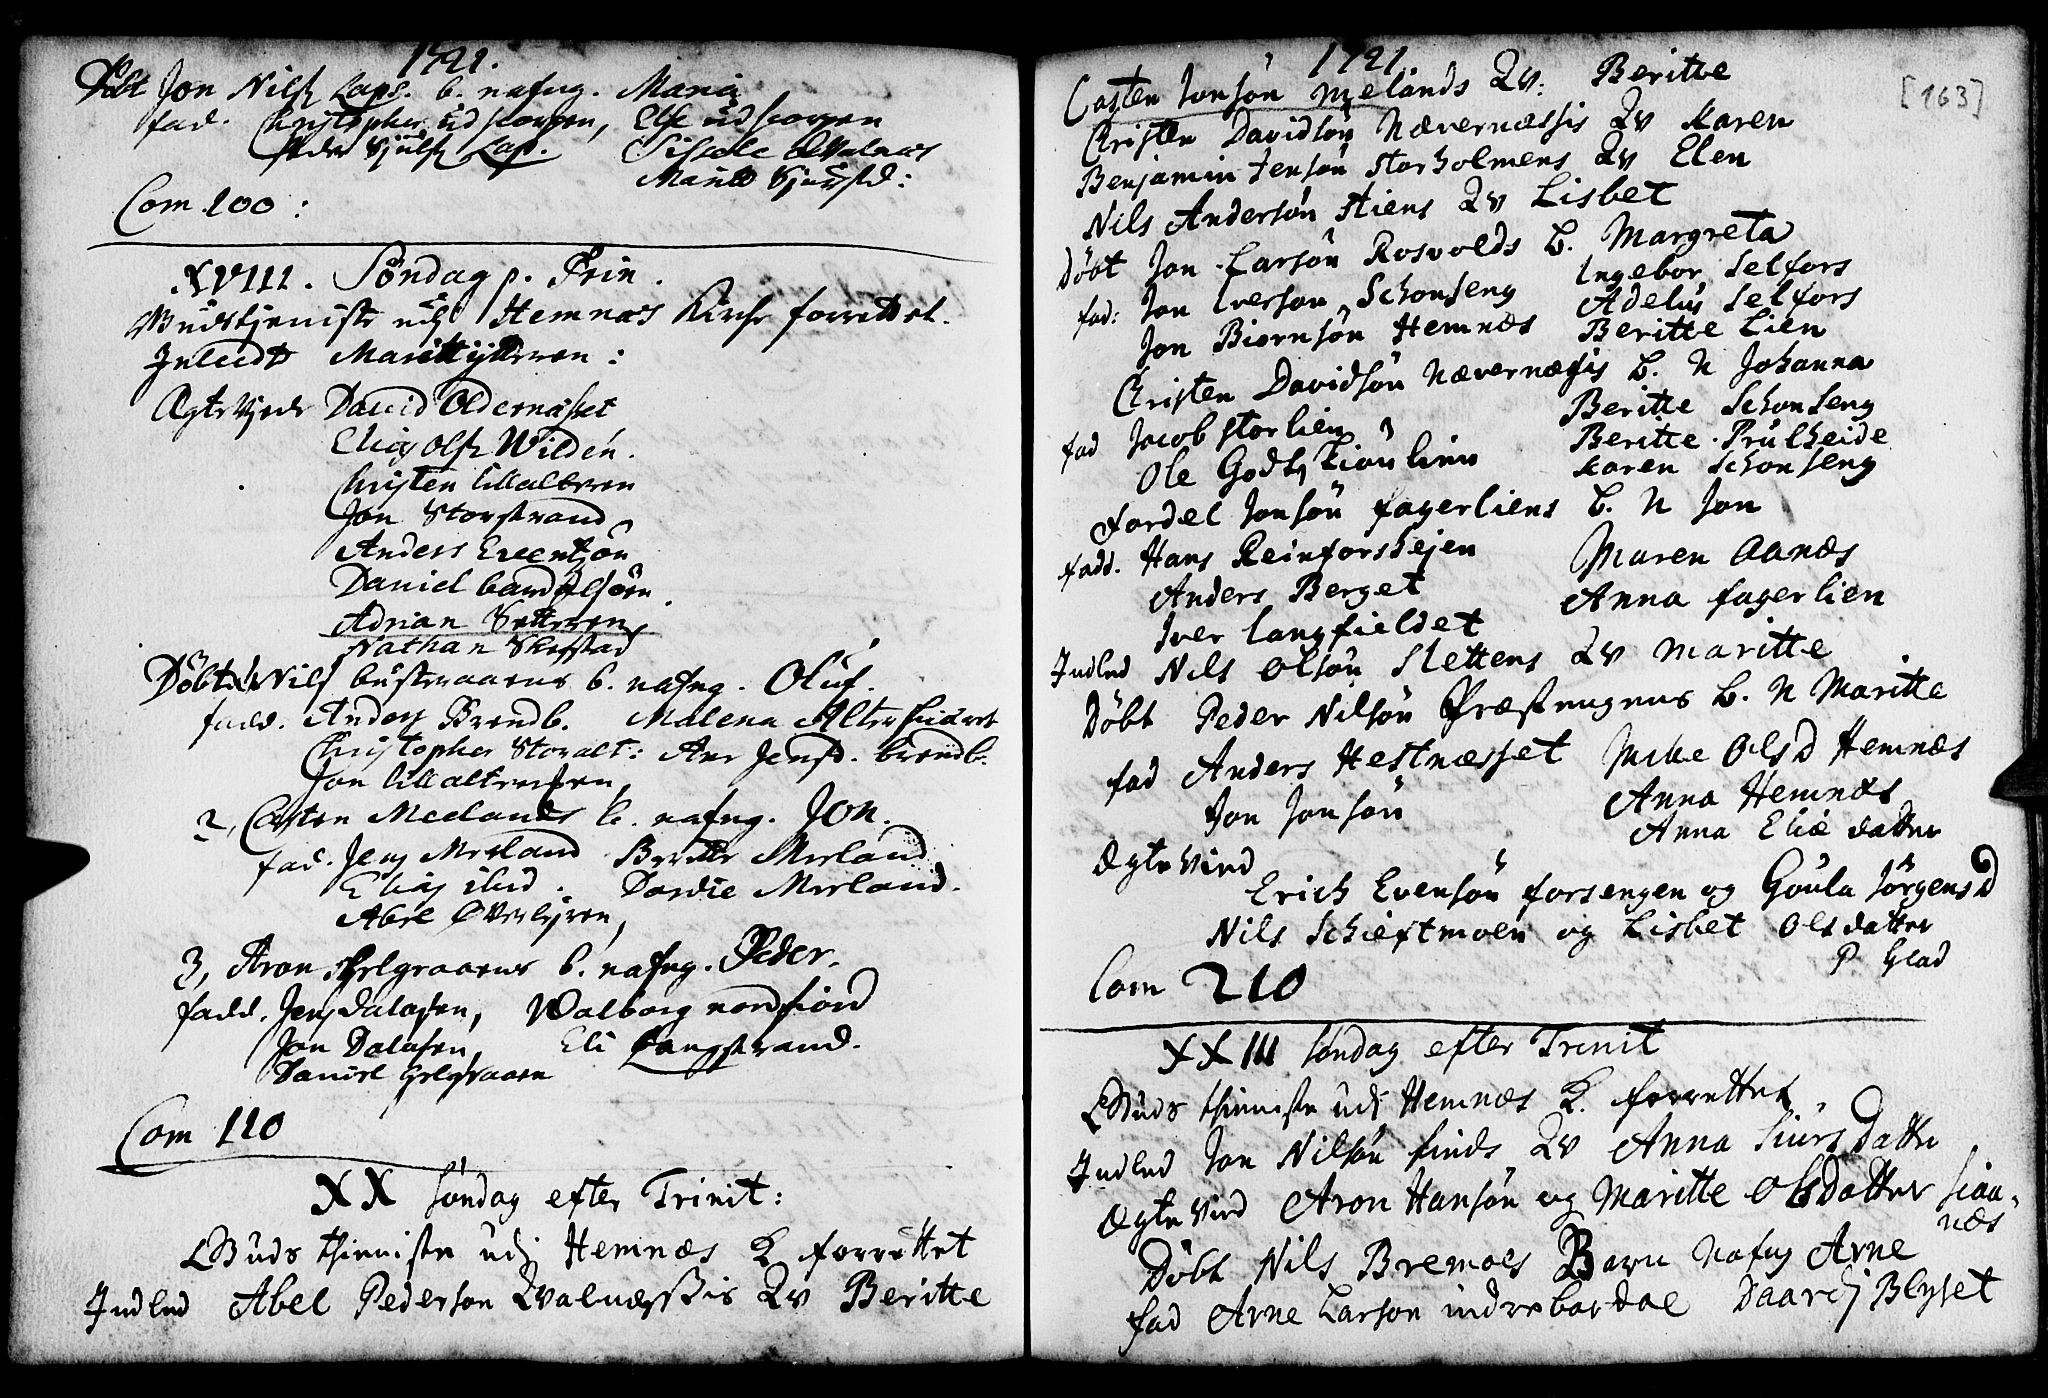 1721.
Döbt Jon Nilss Laps. b. nafng. Maria
fad. Christopher udskorpen, Else udskorpen
Peder Sjulss Lap. Sissele
Marite Sjursd:
Com 100:
XVIII. Söndag p. Trin.
Gudstjeniste udj Hemnæs Kirche forrettet.
Inledt Maritte ytteren:
Ægtevjede David Oldernæsset
Elias Olss Wilden.
Christen Lillalteren
Jon Storstrand
Anders
Daniel
Adrian
Nathan
Döbte Nils busteraaens b. nafng. Oluf.
fadd. Anders Brendb. Malena Alterhiaret
Christopher Storalt: Ane Jensd. brendb.
Jon Lillalteren,
2, Casten Meelands b. nafng. Jon.
fad. Jens Meeland Beritte Meeland
Elias ibid. Dordie Meeland.
Abel
3, Aron Helgraaens b. nafng. Peder.
fadd. Jens Dalosen, Walborg nordfiord
Jon Dalosen, Eli Langstrand.
Daniel Helgraaen
Com 110
XX söndag efter Trinit:
Guds thieniste udj Hemnæs K forrettet
Indled Abel Pederson Qvalnæssis Qv Beritte
1721. [163]
Casten Jonsön Melands Qv: Beritte
Christen Davidsön Nævernæssis Qv Karen
Benjamin Jensön Storholmens Qv Elen
Nils Andersön Stiens Qv Lisbet
Döbt Jon Larsön Rosvolds B. Margreta
fad: Jon Iverson Schonseng Ingebor Selfors
Jon Biørnsön Hemnæs Adelus Selfors
Beritte Lien
Christen Davidsön Nævernæssis B. N Johanna
fad Jacob Storlien Beritte Schonseng
Ole Godtskionlien Beritte Prulheide
Karen Schonseng
Fordel Jonsön fagerliens B. N Jon
fadd. Hans Reinforshejen Maren Aanæs
Anders Berget Anna fagerlien
Iver langfieldet
Indled Nils Olsön Slettens Qv Maritte
Döbt Peder Nilsön Præstengens B. N Maritte
fad Anders Hestnæsset Mille Olsd Hemnæs
Jon Jonsön Anna Hemnæs
Anna Eliæ datter
Ægte Vied
Erich Evensön forsengen og Goula Jörgensd
Nils Schieftmoen og Lisbet Olsdatter
P Glad
Com 210
XXIII söndag efter Trenit
Guds thieniste udj Hemnæs K. forrettet.
Indled Jon Nilsön finds Qv Anna Siursdatter
Ægte Vied Aron Hansön og Maritte Olsdatter Siaa-
næs
Döbt Nils Bremoes Barn Nafng Arne
fad Arne Larson indrebardal Daardj Blyset